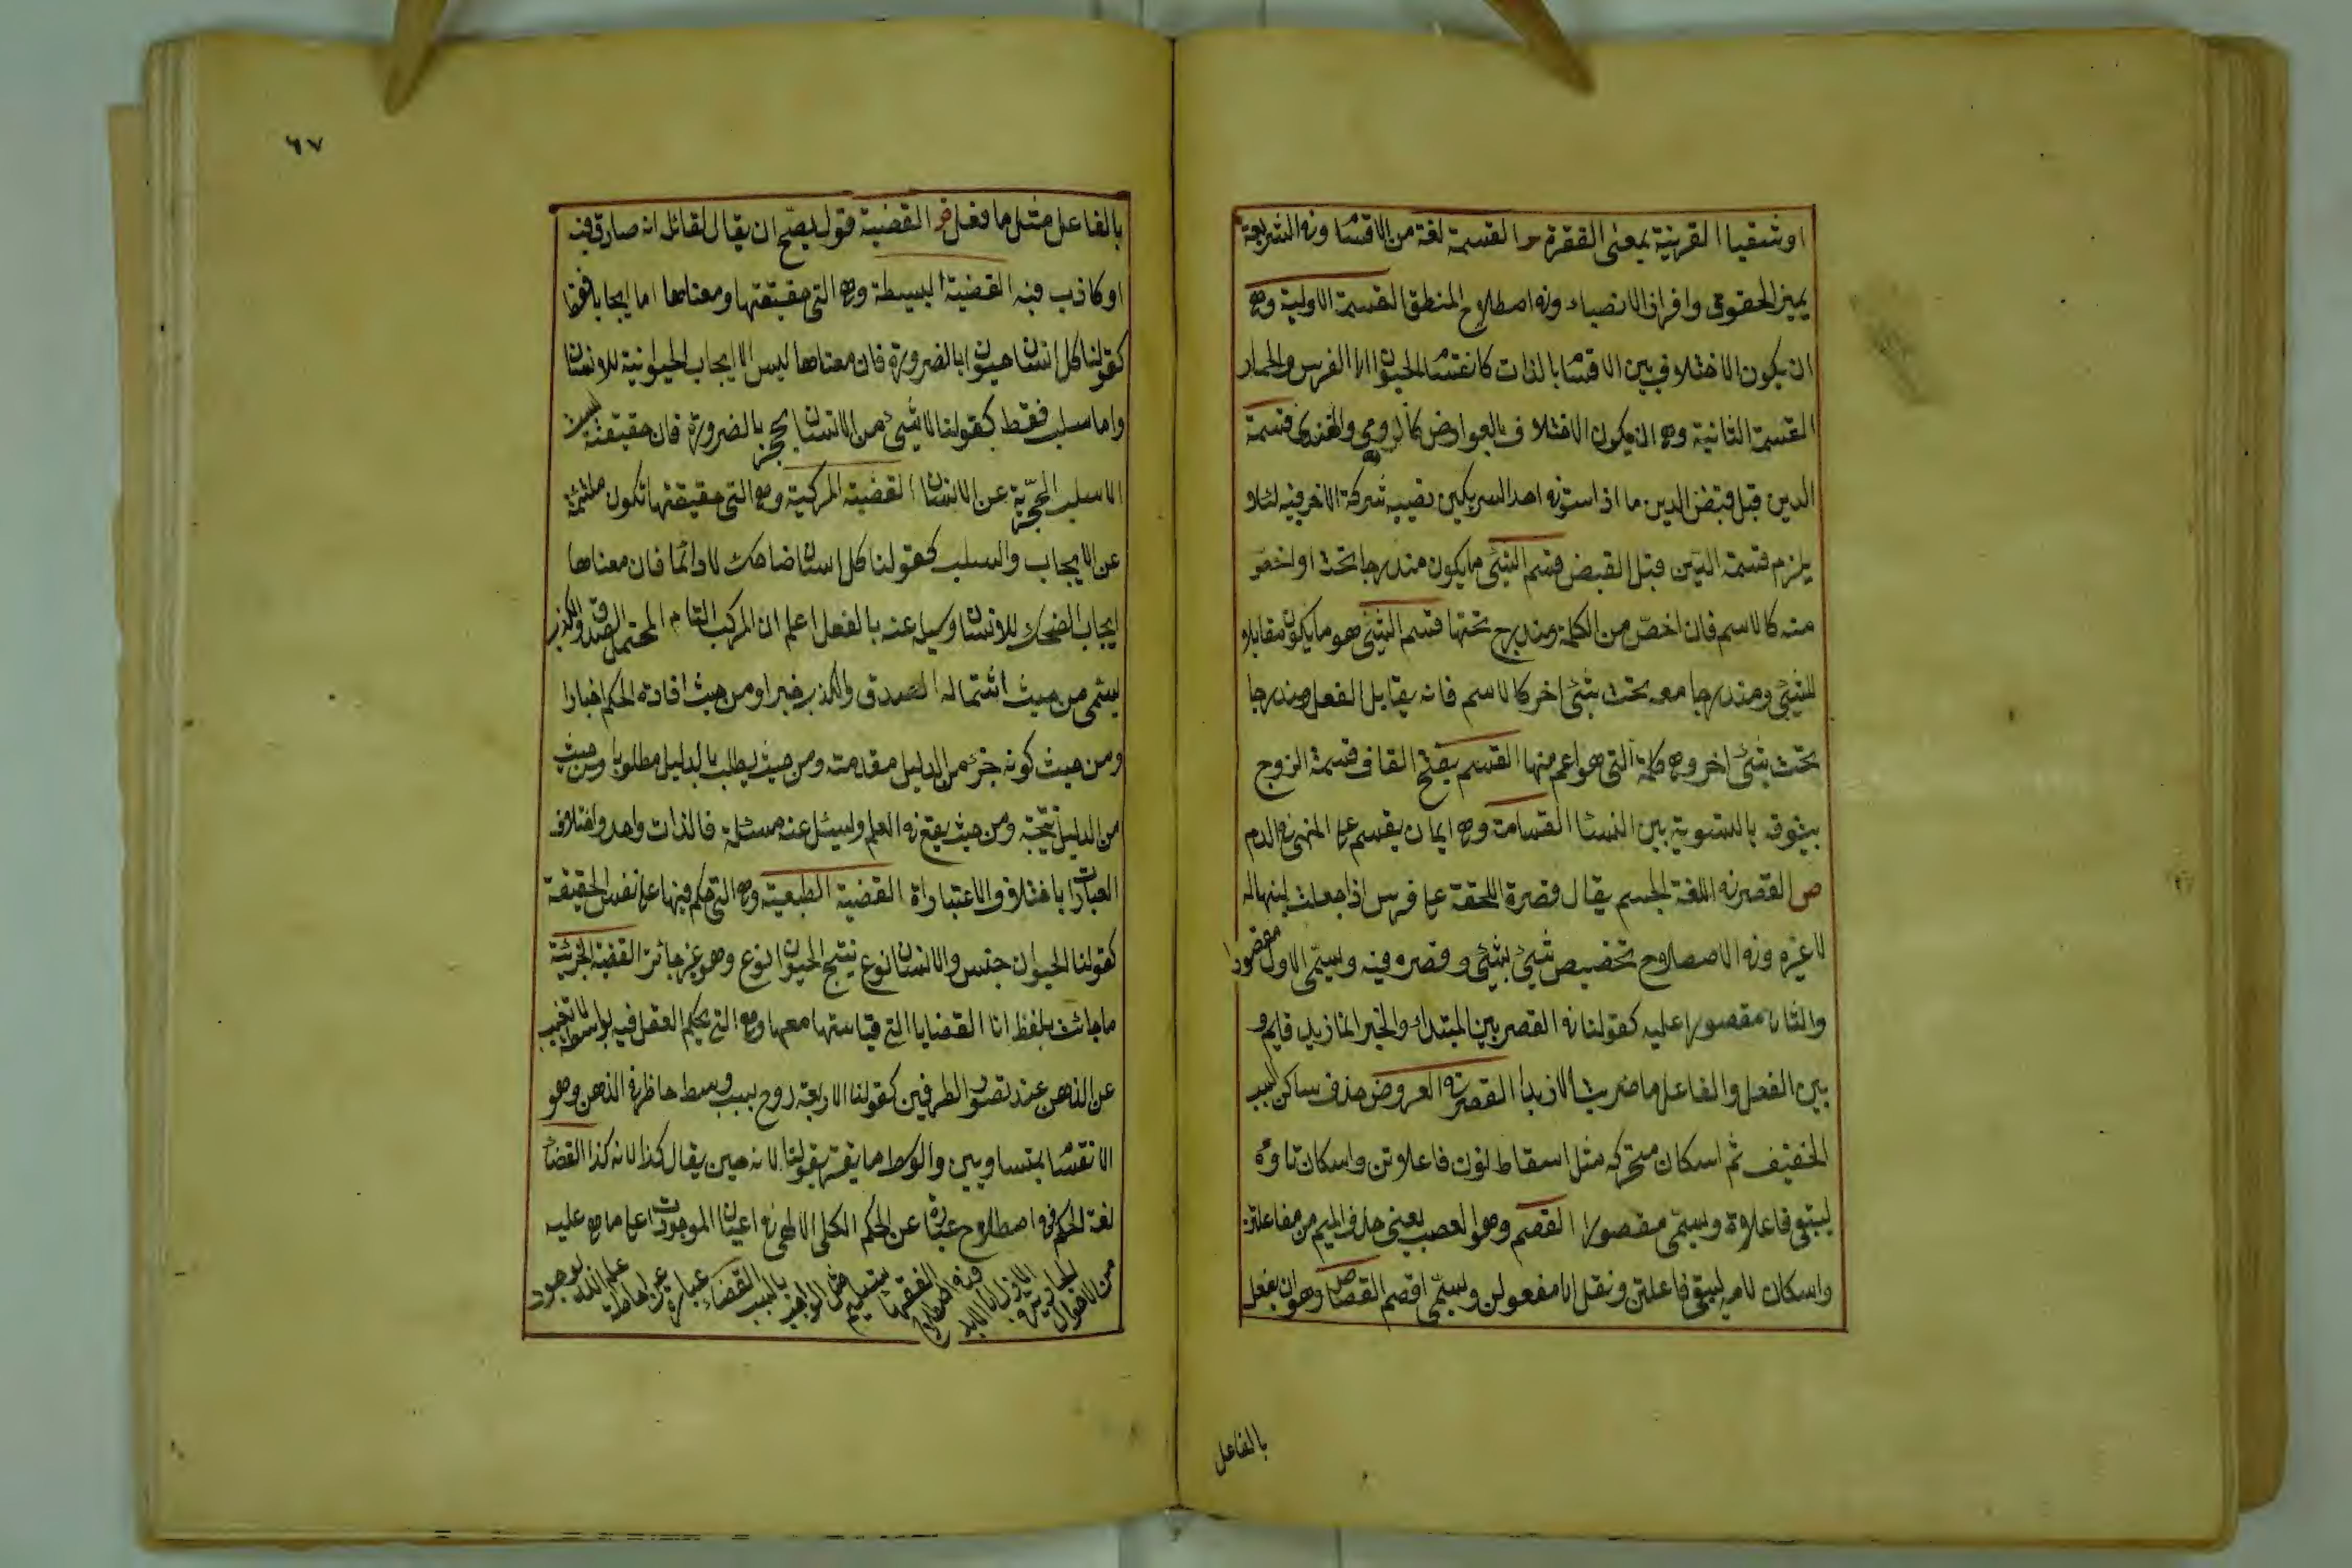 او شقيا القرينة بمعنى الفقرة س القسمة لغة من الاقتسا وفي الشريعة
يميز الحقوق وافراز الانصباء وفي اصطلاح المنطق القسمة الاولية وهي
ان يكون الاختلاف بين الاقسا بالذات كانقسا الحيوان الى الفرس والحمار
القسمة الثانية وهي ان يكون الاختلاف بالعوارض كالرومي والهندي قسمة
الدين قبل قبض الدين ما اذا استوفى احد الشريكين نصيبه شركة الاخر فيه لئلا
يلزم قسمة الدين قبل القبض قسم الشئ ما يكون مندرجا تحت او اخص
منه كالاسم فان اخص من الكلمة ومندرج تحتها قسيم الشئ هو ما يكون مقابلا
للشئ ومندرجا معه تحت شئ اخر كالاسم فانه يقابل الفعل ومندرجا
تحت شئ اخر وهي كلمة التي هو اعم منها القسم بفتح القاف قسمة الزوج
بيتوته بالتسوية بين النسا القسامة وهي ايمان يقسم على المتهم في الدم
ص القصر في اللغة الحبس يقال قصرة اللقحة على فرس اذا جعلت لبنها له
لا غيره وفي الاصطلاح تخصيص شئ بشئ وقصره فيه ويسمى الاول مقصورا
والثاني مقصورا عليه كقولنا في القصر بين المبتداء والخبر انما زيد قايم و
بين الفعل والفاعل ما ضربت الا زيدا القصر في العروض حذف ساكن السبب
الخفيف ثم اسكان متحركه مثل اسقاط نون فاعلاتن واسكان تاؤه
ليبقى فاعلاة ويسمى مقصورا القصم وهو العصب يعنى حذف الميم من مفاعلتن
واسكان لامه ليبقى فاعلتن ونقل الى مفعولن ويسمى اقصم القصاص وهو ان يفعل
بالفاعل
٦٧
بالفاعل مثل ما فعل ض القضية قول يصح ان يقال لقائل انه صادق فيه
او كاذب فيه القضية البسيطة وهي التي حقيقتها ومعناها اما ايجابا فقط
كقولنا كل انسان حيوان بالضرورة فان معناها ليس الا ايجاب الحيوانية للانسان
واما سلب فقط كقولنا لا شئ من الانسان بحجر بالضرورة فان حقيقته ليست
الا سلب الحجرية عن الانسان القضية المركبة وهي التي حقيقتها تكون ملتئمة
عن الايجاب والسلب كقولنا كل انسان ضاحك لا دائما فان معناها
ايجاب الضحك للانسان وسلبه عنه بالفعل اعلم ان المركب التام المحتمل الصدق والكذب
يسمى من حيث اشتماله الصدق والكذب خبرا ومن حيث افادته الحكم اخبارا
ومن حيث كونه جزء من الدليل مقدمته ومن حيث يطلب بالدليل مطلوبا ومن حيث
من الدليل نتيجة ومن حيث يقع في العلم ويسئل عنه مسئلة فالذات واحد واختلاف
العبارات باختلاف الاعتباراة القضية الطبعية وهي التي حكم فيها على نفس الحقيقة
كقولنا الحيوان جنس والانسان نوع ينتج الحيوان نوع وهو غير جائز القضية الجزئية
ما جائت بلفظ انا القضايا التي قياستها معها وهي التي يحكم العقل فيه بواسطة لا تغيب
عن الذهن عند تصور الطرفين كقولنا الاربعة زوج بسبب وسط حاظر في الذهن وهو
الانقسا بمتساويين والوسط ما يقترن بقولنا لانه حين يقال كذا لانه كذا القضاء
لغة الحكم في اصطلاح عبارة عن الحكم الكلى الالهى في اعيان الموجودات على ما هي عليه
من الاحوال الجارية الازل الى الابد وفي اصطلاح الفقهاء تسليم مثل الواجب بالسبب القضاء عبارة عن احاطة علم الله لوجود